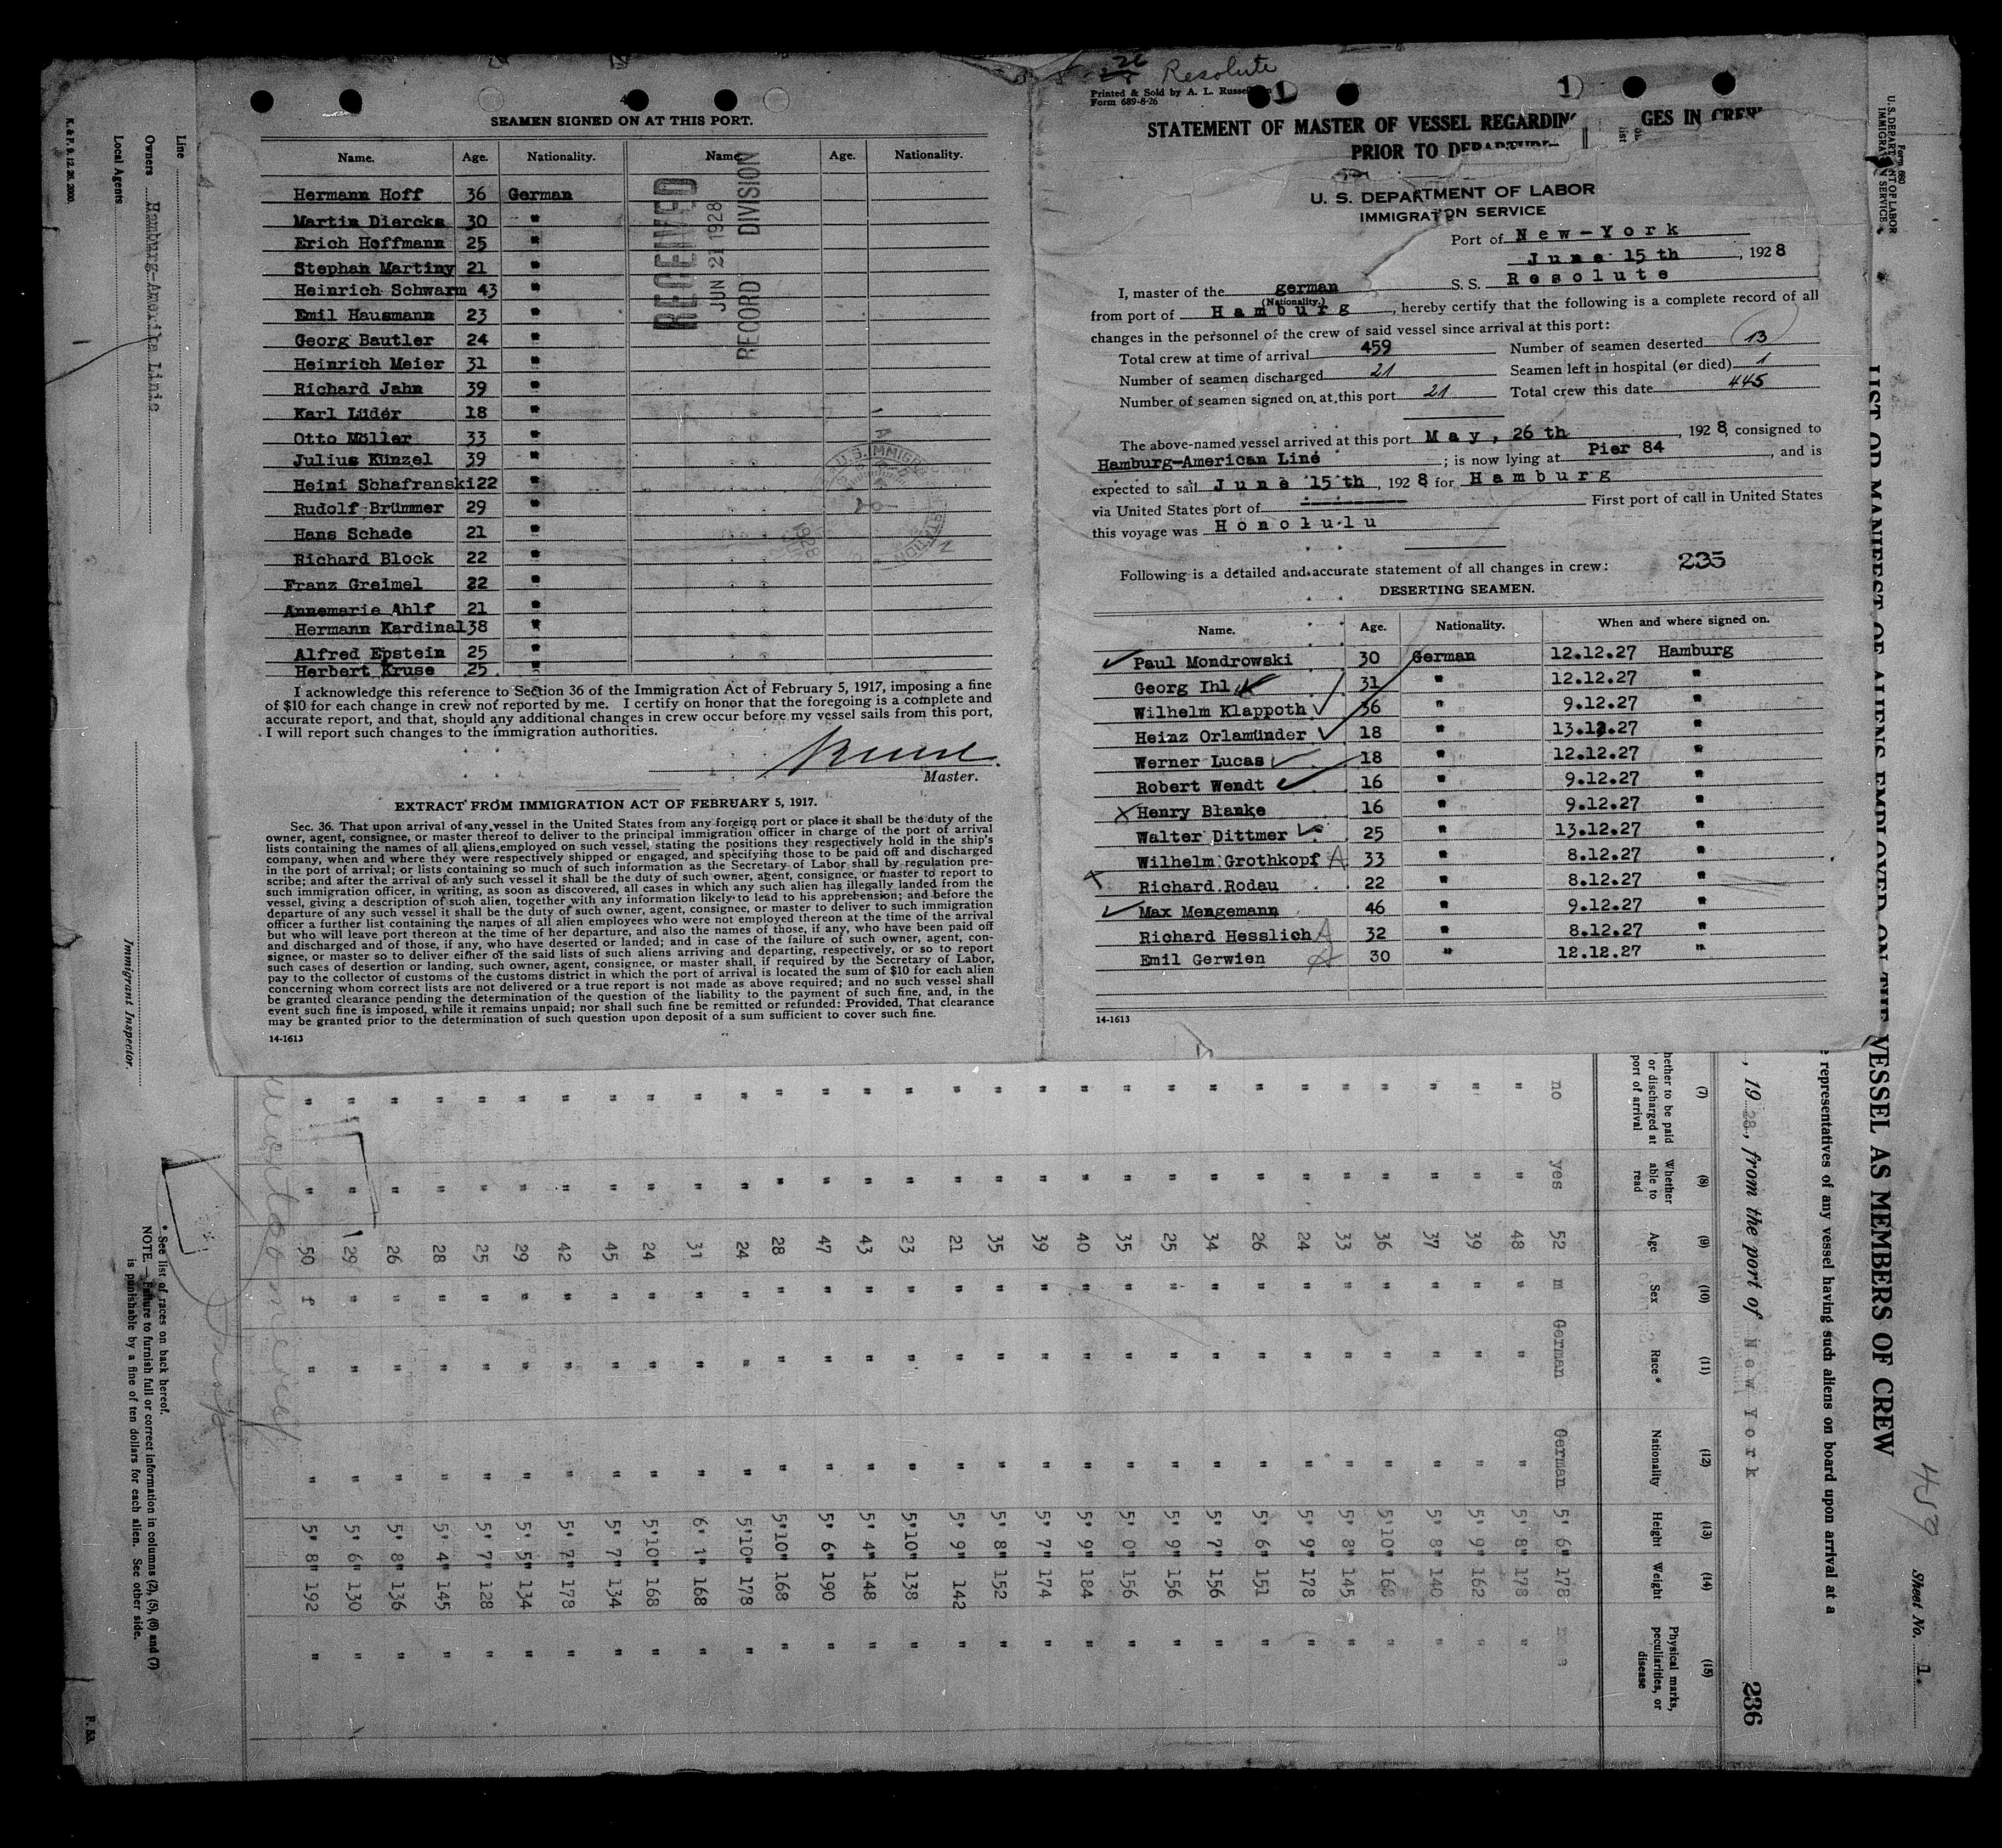 SEAMEN SIGNED ON AT THIS PORT.
Name. Age. Nationality. Name. Age. Nationality.
Hermann Hoff 36 German
Martin Diercks 30 "
Erich Hoffmann 25 "
Stephan Martiny 21 "
Heinrich Schwarm 43 "
Emil Hausmann 23 "
Georg Bautler 24 "
Heinrich Meier 31 "
Richard Jahn 39 "
Karl Lüder 18 "
Otto Möller 33 "
Julius Künzel 39 "
Heini Schafranski 22 "
Rudolf Brümmer 29 "
Hans Schade 21 "
Richard Block 22 "
Franz Greimel 22 "
Annemarie Ahlf 21 "
Hermann Kardinal 38 "
Alfred Epstein 25 "
Herbert Kruse 25 "
RECEIVED
JUN 21 1928
RECORD DIVISION
I acknowledge this reference to Section 36 of the Immigration Act of February 5, 1917, imposing a fine
of $10 for each change in crew not reported by me. I certify on honor that the foregoing is a complete and
accurate report, and that, should any additional changes in crew occur before my vessel sails from this port,
I will report such changes to the immigration authorities.
Master.
EXTRACT FROM IMMIGRATION ACT OF FEBRUARY 5, 1917.
Sec. 36. That upon arrival of any vessel in the United States from any foreign port or place it shall be the duty of the
owner, agent, consignee, or master thereof to deliver to the principal immigration officer in charge of the port of arrival
lists containing the names of all aliens employed on such vessel, stating the positions they respectively hold in the ship's
company, when and where they were respectively shipped or engaged, and specifying those to be paid off and discharged
in the port of arrival; or lists containing so much of such information as the Secretary of Labor shall by regulation pre-
scribe; and after the arrival of any such vessel it shall be the duty of such owner, agent, consignee, or master to report to
such immigration officer, in writing, as soon as discovered, all cases in which any such alien has illegally landed from the
vessel, giving a description of such alien, together with any information likely to lead to his apprehension; and before the
departure of any such vessel it shall be the duty of such owner, agent, consignee, or master to deliver to such immigration
officer a further list containing the names of all alien employees who were not employed thereon at the time of the arrival
but who will leave port thereon at the time of her departure, and also the names of those, if any, who have been paid off
and discharged and of those, if any, who have deserted or landed; and in case of the failure of such owner, agent, con-
signee, or master so to deliver either of the said lists of such aliens arriving and departing, respectively, or so to report
such cases of desertion or landing, such owner, agent, consignee, or master shall, if required by the Secretary of Labor,
pay to the collector of customs of the customs district in which the port of arrival is located the sum of $10 for each alien
concerning whom correct lists are not delivered or a true report is not made as above required; and no such vessel shall
be granted clearance pending the determination of the question of the liability to the payment of such fine, and, in the
event such fine is imposed, while it remains unpaid; nor shall such fine be remitted or refunded: Provided, That clearance
may be granted prior to the determination of such question upon deposit of a sum sufficient to cover such fine.
14-1613
Resolute
Printed & Sold by A. L.
Form 689-8-26
STATEMENT OF MASTER OF VESSEL REGARDING GES IN CREW
PRIOR TO DEPARTURE
U. S. DEPARTMENT OF LABOR
IMMIGRATION SERVICE
Port of New-York
June 15 th, 1928
I, master of the german S. S. Resolute
(Nationality.)
from port of Hamburg, hereby certify that the following is a complete record of all
changes in the personnel of the crew of said vessel since arrival at this port:
Total crew at time of arrival 459 Number of seamen deserted 13
Number of seamen discharged 21 Seamen left in hospital (or died) 1
Number of seamen signed on at this port 21 Total crew this date 445
The above-named vessel arrived at this port May, 26 th, 1928, consigned to
Hamburg-American Line; is now lying at Pier 84, and is
expected to sail June 15 th, 1928 for Hamburg
via United States port of First port of call in United States
this voyage was Honolulu
Following is a detailed and accurate statement of all changes in crew: 235
DESERTING SEAMEN.
Name. Age. Nationality. When and where signed on.
Paul Mondrowski 30 German 12.12.27 Hamburg
Georg Ihl 31 " 12.12.27 "
Wilhelm Klappoth 36 " 9.12.27 "
Heinz Orlamünder 18 " 13.12.27 "
Werner Lucas 18 " 12.12.27 "
Robert Wendt 16 " 9.12.27 "
Henry Blanke 16 " 9.12.27 "
Walter Dittmer 25 " 13.12.27 "
Wilhelm Grothkopf A 33 " 8.12.27 "
Richard Rodau 22 " 8.12.27 "
Max Mengemann 46 " 9.12.27 "
Richard Hesslich A 32 " 8.12.27 "
Emil Gerwien A 30 " 12.12.27 "
14-1613
VESSEL AS MEMBERS OF CREW
Sheet No. 1.
459
representatives of any vessel having such aliens on board upon arrival at a
, 1928, from the port of New York
236
(7) (8) (9) (10) (11) (12) (13) (14) (15)
hether to be paid or discharged at port of arrival
Whether able to read
Age
Sex
Race*
Nationality
Height
Weight
Physical marks, peculiarities, or disease
no yes 52 m German German 5' 6" 178
" " 48 " " " 5' 8" 178 "
" " 39 " " " 5' 9" 162 "
" " 37 " " " 5' 8" 140 "
" " 36 " " " 5'10" 168 "
" " 33 " " " 5' 8" 145 "
" " 24 " " " 5' 9" 178 "
" " 26 " " " 5' 6" 151 "
" " 34 " " " 5' 7" 156 "
" " 25 " " " 5' 9" 156 "
" " 35 " " " 5' 0" 156 "
" " 40 " " " 5' 9" 184 "
" " 39 " " " 5' 7" 174 "
" " 35 " " " 5' 8" 152 "
" " 21 " " " 5' 9" 142 "
" " 23 " " " 5'10" 138 "
" " 43 " " " 5' 4" 148 "
" " 47 " " " 5' 6" 190 "
" " 28 " " " 5'10" 168 "
" " 24 " " " 5'10" 178 "
" " 31 " " " 6' 1" 168 "
" " 24 " " " 5'10" 168 "
" " 45 " " " 5' 7" 134 "
" " 42 " " " 5' 7" 178 "
" " 29 " " " 5' 5" 134 "
" " 25 " " " 5' 7" 128 "
" " 28 " " " 5' 4" 145 "
" " 26 " " " 5' 8" 136 "
" " 29 " " " 5' 6" 130 "
" " 50 f " " 5' 8" 192 "
* See list of races on back hereof.
NOTE.—Failure to furnish full or correct information in columns (2), (5), (6) and (7)
is punishable by a fine of ten dollars for each alien. See other side.
F. 53.
Line
Owners Hamburg-Amerika Linie
Local Agents
Immigrant Inspector.